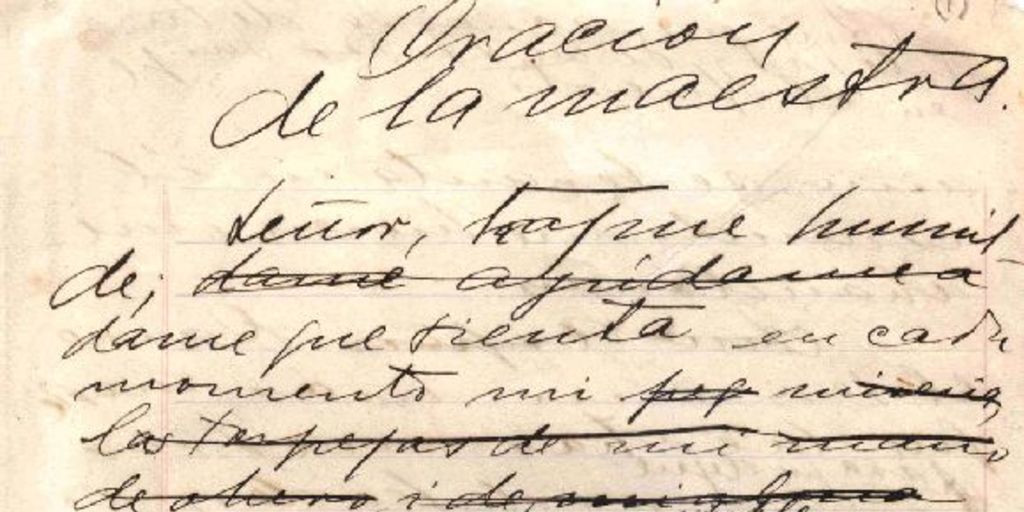 (1)
Oracion
de la maestra.
Señor, hazme humil
de; dame ayúdame a
dame que sienta en cada
momento mi peq miseria,
las torpezas de mi mano
de obrero i de mi alma